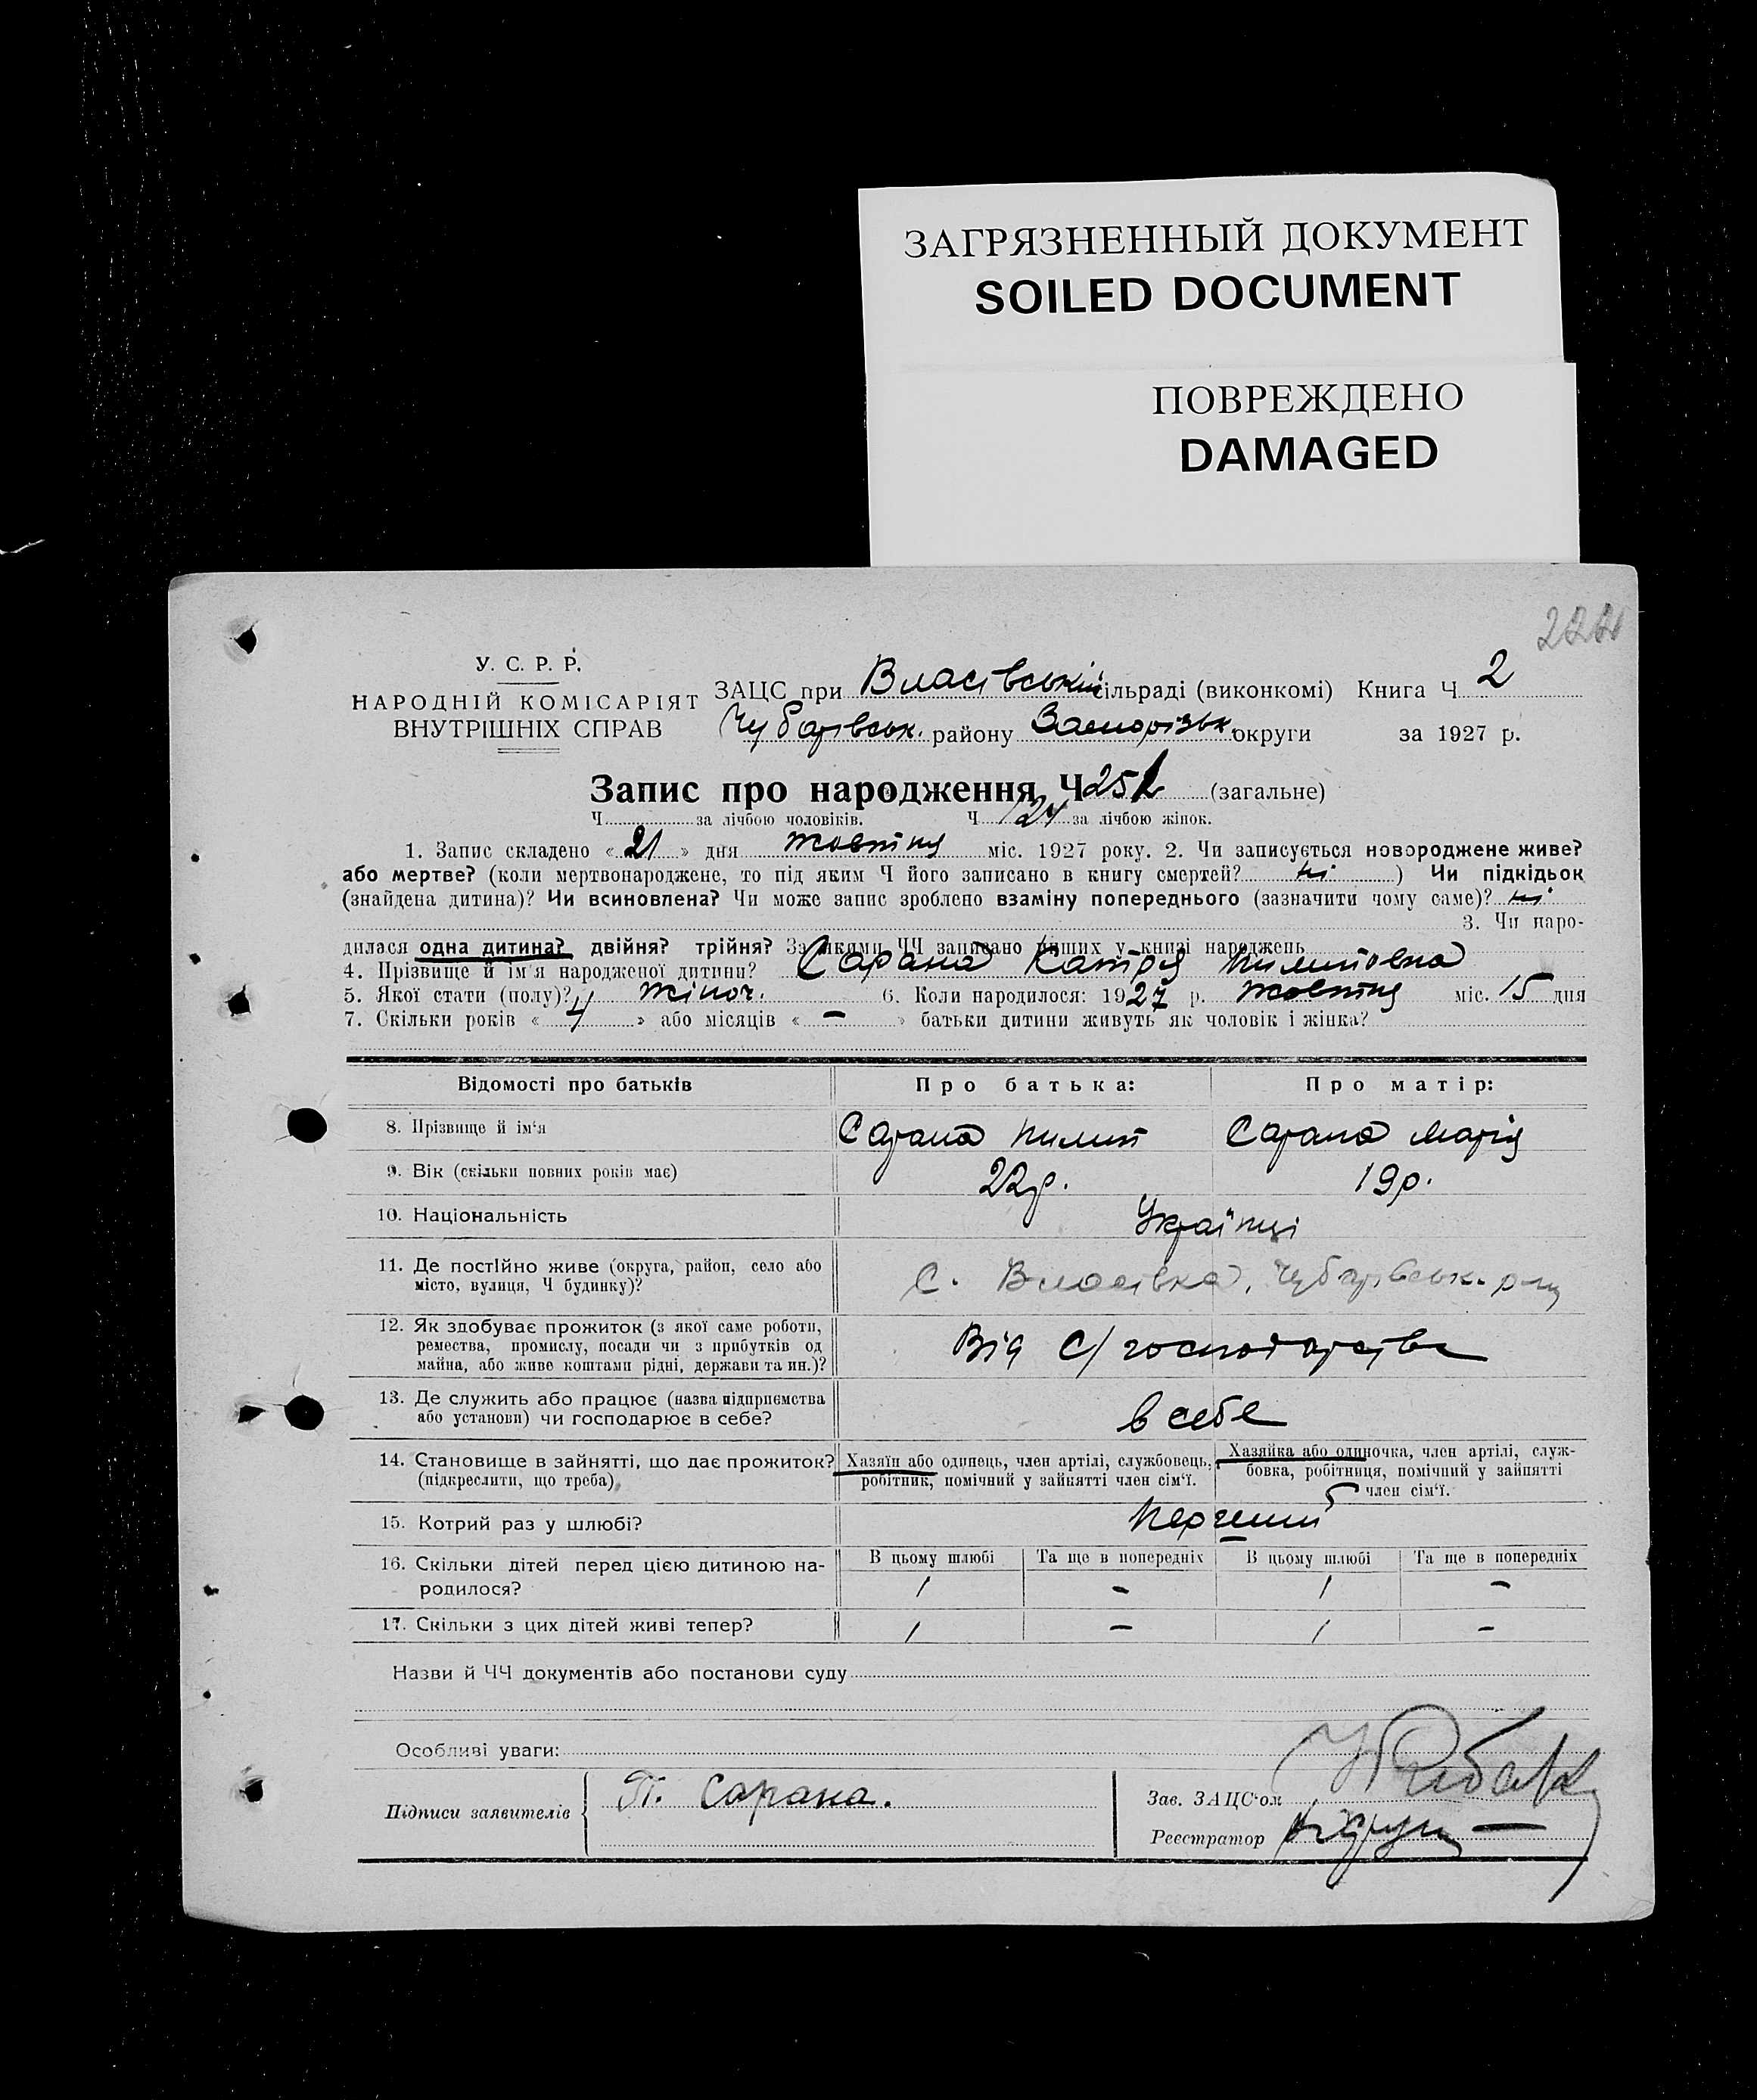 ЗАГРЯЗНЕННЫЙ ДОКУМЕНТ
SOILED DOCUMENT
ПОВРЕЖДЕНО
DAMAGED
У. С. Р. Р.
НАРОДНІЙ КОМІСАРІЯТ
ВНУТРІШНІХ СПРАВ
ЗАЦС при Власівській сільраді (виконкомі) Книга Ч 2
Чубарівськ. району Запорізьк. округи за 1927 р.
Запис про народження Ч 252 (загальне)
Ч за лічбою чоловіків. Ч 124 за лічбою жінок.
1. Запис складено «21» дня жовтня міс. 1927 року. 2. Чи записується новороджене живе?
або мертве? (коли мертвонароджене, то під яким Ч його записано в книгу смертей? ні ) Чи підкідьок
(знайдена дитина)? Чи всиновлена? Чи може запис зроблено взаміну попереднього (зазначити чому саме)? ні
3. Чи наро-
дилася одна дитина? двійня? трійня? За якими ЧЧ записано інших у книзі народжень
4. Прізвище й ім'я народженої дитини? Сарана Катря Пилиповна
5. Якої стати (полу)? жіноч. 6. Коли народилося: 1927 р. жовтня міс. 15 дня
7. Скільки років « 4 » або місяців « – » батьки дитини живуть як чоловік і жінка?
Відомості про батьків Про батька: Про матір:
8. Прізвище й ім'я Сарана Пилип Сарана Марія
9. Вік (скільки повних років має) 22 р. 19 р.
10. Національність Українці
11. Де постійно живе (округа, район, село або
місто, вулиця, Ч будинку)? С. Власівка, Чубарівськ. р-ну
12. Як здобуває прожиток (з якої саме роботи,
ремества, промислу, посади чи з прибутків од
майна, або живе коштами рідні, держави та ин.)? Від с/господарства
13. Де служить або працює (назва підприємства
або установи) чи господарює в себе? в себе
14. Становище в зайнятті, що дає прожиток?
(підкреслити, що треба)
Хазяїн або одинець, член артілі, службовець,
робітник, помічний у зайнятті член сім'ї.
Хазяйка або одиночка, член артілі, служ-
бовка, робітниця, помічний у зайнятті
член сім'ї.
15. Котрий раз у шлюбі? Перший
16. Скільки дітей перед цією дитиною на-
родилося?
В цьому шлюбі Та ще в попередніх В цьому шлюбі Та ще в попередніх
1 – 1 –
17. Скільки з цих дітей живі тепер? 1 – 1 –
Назви й ЧЧ документів або постанови суду
Особливі уваги:
Підписи заявителів П. Сарана.
Зав. ЗАЦС'ом
Реєстратор